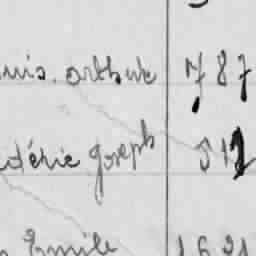 uis. arthur 787
édéric Joseph 512
Emile 1621